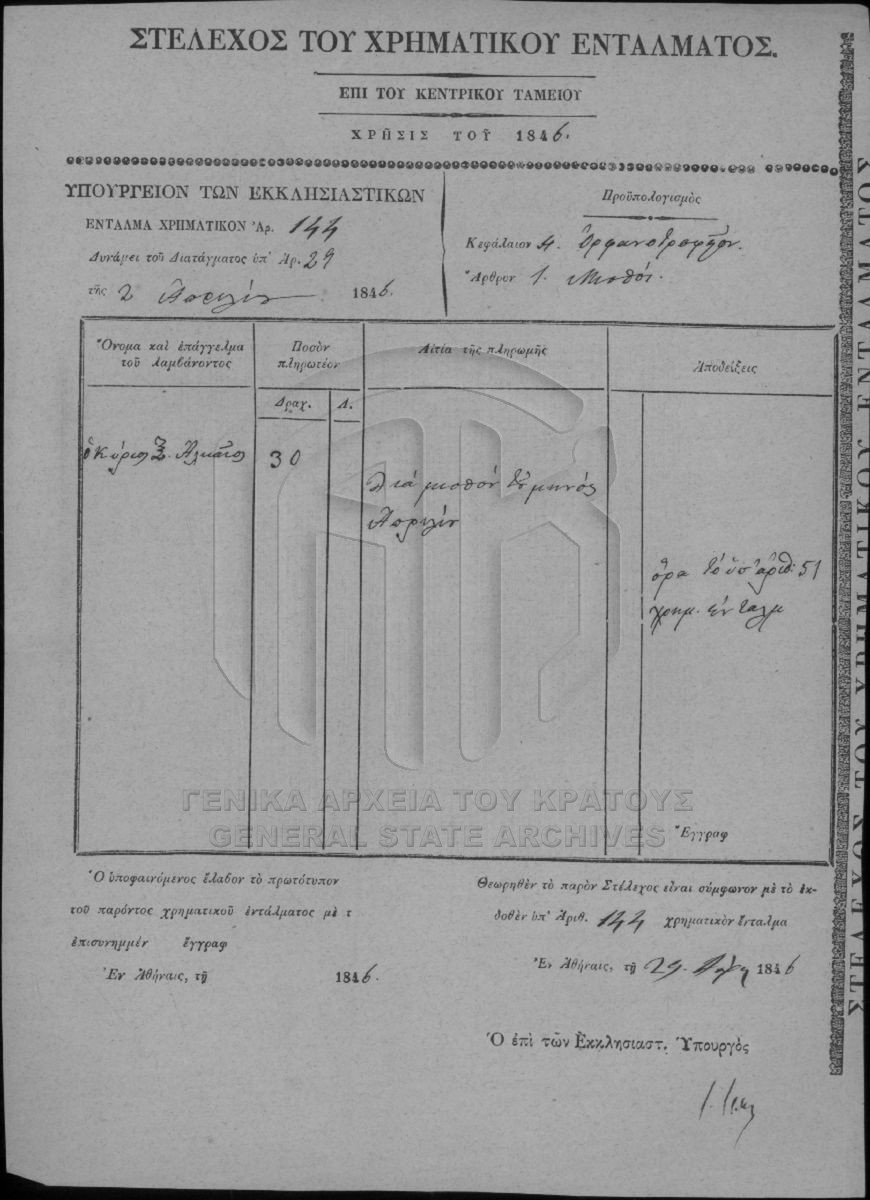 ΣΤΕΛΕΧΟΣ ΤΟΥ ΧΡΗΜΑΤΙΚΟΥ ΕΝΤΑΛΜΑΤΟΣ.
ΕΠΙ ΤΟΥ ΚΕΝΤΡΙΚΟΥ ΤΑΜΕΙΟΥ
ΧΡΗΣΙΣ ΤΟΥ 1846.
ΥΠΟΥΡΓΕΙΟΝ ΤΩΝ ΕΚΚΛΗΣΙΑΣΤΙΚΩΝ
ΕΝΤΑΛΜΑ ΧΡΗΜΑΤΙΚΟΝ Ἀρ. 144
Δυνάμει τοῦ Διατάγματος ὑπ' Ἀρ. 29
τῆς 2 Ἀπριλίου 1846.
Προϋπολογισμὸς
Κεφάλαιον 4. Ὀρφανοτροφεῖον.
Ἄρθρον 1. Μισθοί.
Ὄνομα καὶ ἐπάγγελμα
τοῦ λαμβάνοντος
Ποσὸν
πληρωτέον
Αἰτία τῆς πληρωμῆς
Ἀποδείξεις
Δραχ.
Λ.
ὁ Κύριος Ἀλκαῖος
30
Διά μισθόν τοῦ μηνός
Ἀπριλίου
ὅρα τό ὑπ' ἀριθ: 51
χρημ. ἐνταλμ
Ἔγγραφ
ΓΕΝΙΚΑ ΑΡΧΕΙΑ ΤΟΥ ΚΡΑΤΟΥΣ
GENERAL STATE ARCHIVES
Ὁ ὑποφαινόμενος ἔλαβον τὸ πρωτότυπον
τοῦ παρόντος χρηματικοῦ ἐντάλματος μὲ τ
ἐπισυνημμέν ἔγγραφ
Ἐν Ἀθήναις, τῇ 1846.
Θεωρηθὲν τὸ παρὸν Στέλεχος εἶναι σύμφωνον μὲ τὸ ἐκ-
δοθὲν ὑπ' Ἀριθ. 144 χρηματικὸν ἔνταλμα
Ἐν Ἀθήναις, τῇ 29 1846
Ὁ ἐπὶ τῶν Ἐκκλησιαστ. Ὑπουργὸς
ΣΤΕΛΕΧΟΣ ΤΟΥ ΧΡΗΜΑΤΙΚΟΥ ΕΝΤΑΛΜΑΤΟΣ